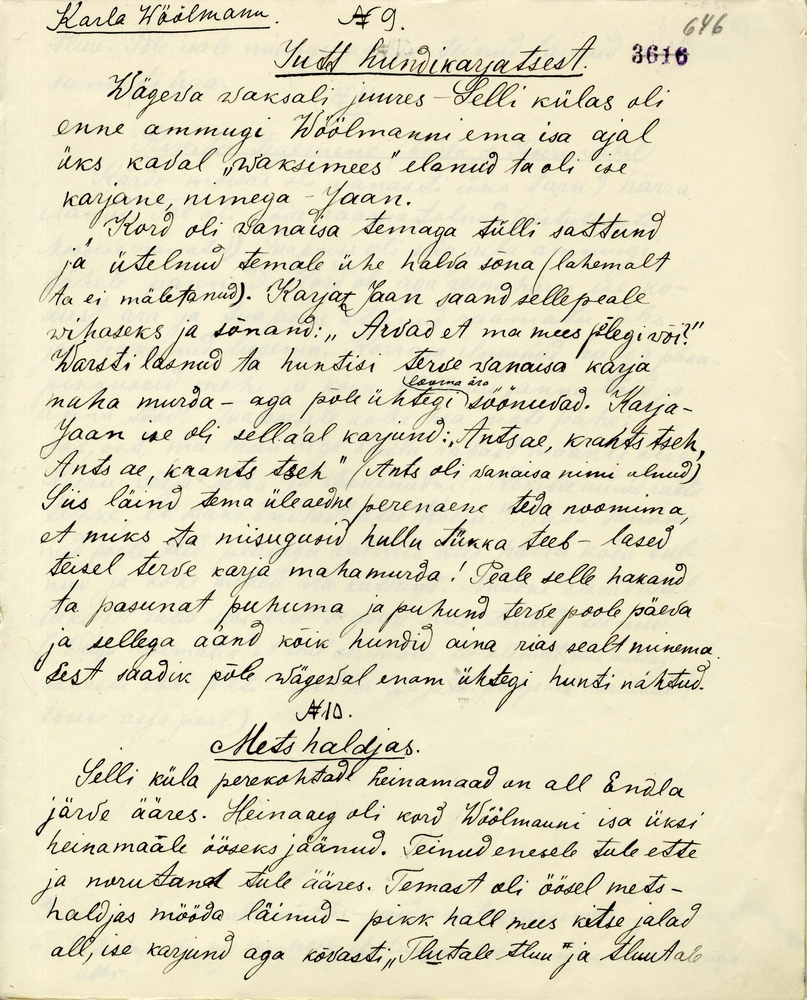 Karla Wöölmann. № 9. 646
Jutt hundikarjatsest. 3616
Wägeva waksali juures – Selli külas oli
enne ammugi Wöölmanni ema isa ajal
üks kaval „waksimees" elanud ta oli ise
karjane, nimega – Jaan.
Kord oli vanaisa temaga tülli sattund
ja ütelnud temale ühe halva sõna (lahemalt
ta ei mäletanud). Karjats Jaan saand sellepeale
wihaseks ja sõnand: „Arvad et ma mees põlegi või?"
Warsti lasnud ta huntisi terve vanaisa karja
looma ära
maha murda – aga põle ühtegi söönuvad. Karja-
Jaan ise oli sella'al karjund: „Ants ae, krants tseh,
Ants ae, krants tseh" (Ants oli vanaisa nimi olnud)
Siis läind tema üleaedne perenaene teda noomima,
et miks ta niisugusid hullu tükka teeb – lased
teisel terve karja mahamurda! Peale selle hakand
ta pasunat puhuma ja puhund terve poole päeva
ja sellega aand kõik hundid aina rias sealt minema.
Sest saadik põle Wägeval enam ühtegi hunti nähtud.
№ 10.
Mets haldjas.
Selli küla perekohtade heinamaad on all Endla
järve ääres. Heinaaeg oli kord Wöölmanni isa üksi
heinamaale ööseks jäänud. Teinud enesele tule ette
ja norutand tule ääres. Temast oli öösel mets-
haldjas mööda läinud – pikk hall mees kitse jalad
all, ise karjund aga kõvasti „Tlutale tluu" ja tluutale